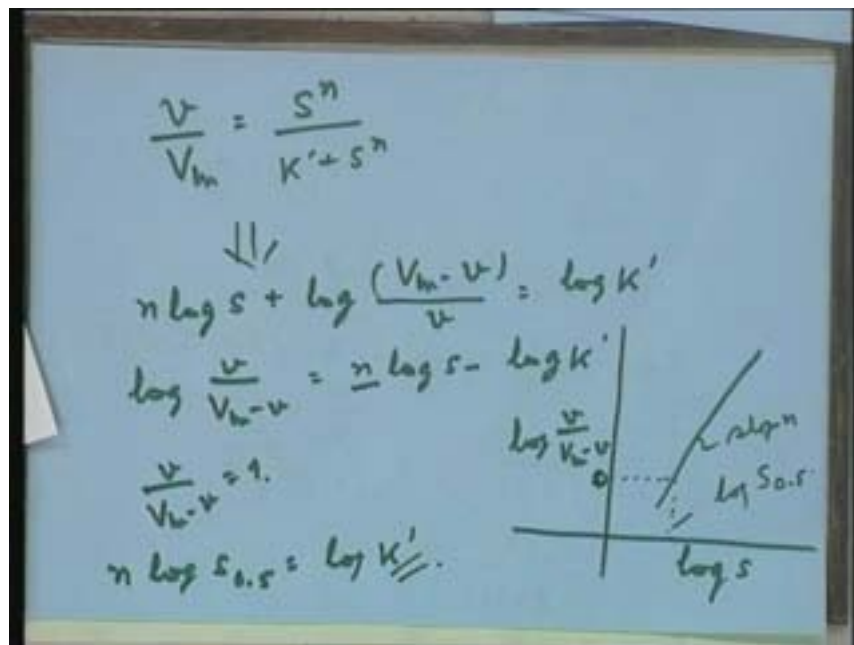 v/V_m = S^n/K' + S^n
⇓
n log S + log (V_m - v)/v = log K'
log v/V_m - v = n log S - log K'
v/V_m - v = 1.
n log S_0.5 = log K'.
log v/V_m - v
0
slope n
log S_0.5
log S